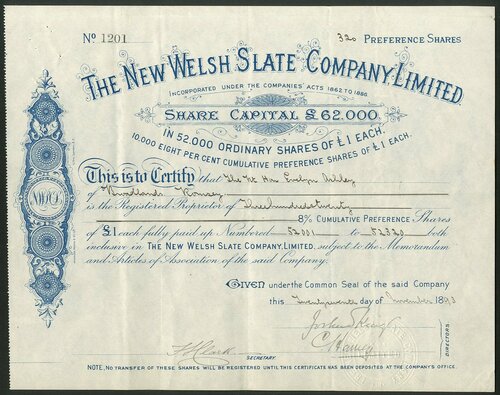 No 1201
320 PREFERENCE SHARES
THE NEW WELSH SLATE COMPANY, LIMITED
INCORPORATED UNDER THE COMPANIES' ACTS 1862 TO 1886
SHARE CAPITAL £62.000.
IN 52.000 ORDINARY SHARES OF £1 EACH.
10.000 EIGHT PER CENT CUMULATIVE PREFERENCE SHARES OF £1 EACH.
This is to Certify that The Rt Hon Evelyn Ashley
of Romsey
is the Registered Proprietor of Three hundred & twenty
8% CUMULATIVE PREFERENCE Shares
of £1 each fully paid up Numbered 52001 to 52320 both
inclusive in THE NEW WELSH SLATE COMPANY, LIMITED, subject to the Memorandum
and Articles of Association of the said Company.
GIVEN under the Common Seal of the said Company
this day of November 1893
DIRECTORS.
SECRETARY.
NOTE. NO TRANSFER OF THESE SHARES WILL BE REGISTERED UNTIL THIS CERTIFICATE HAS BEEN DEPOSITED AT THE COMPANY'S OFFICE.